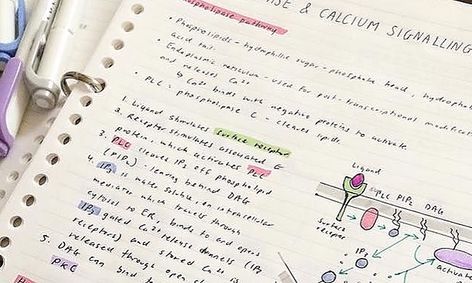 ISE & CALCIUM SIGNALLING
Phospholipase pathway
• Phospholipids - hydrophilic sugar-phosphate head, hydropho
acid tail.
• Endoplasmic reticulum - used for post-transcriptional modifica
and releases Ca²⁺
↳ Ca²⁺ binds with negative proteins to activate
• PLC : phospholipase C - cleaves lipids.
1. Ligand stimulates surface receptor
2. Receptor stimulates associated G
protein, which activates PLC
3. PLC cleaves IP₃ off phospholipid
(PIP₂), leaving behind DAG
4. IP₃ is water soluble, an intracellular
mediator which travels through
cytosol to ER, binds to and opens
IP₃ gated Ca²⁺ release channels (IP₃
receptors) and stored Ca²⁺ is
released through open
5. DAG
PKC can bind to
Ligand
PLC PIP₂ DAG
surface
receptor
IP₃
activate